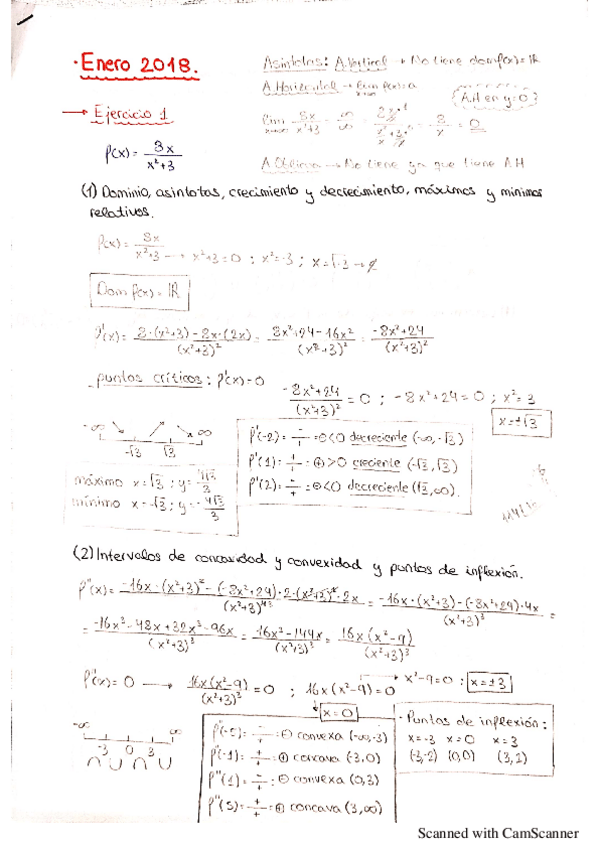 · Enero 2018.
Asíntotas: A.Vertical → No tiene dom f(x)=IR
A.Horizontal → lim f(x)
x→∞
(A.H en y=0)
→ Ejercicio 1
lim 8x/x²+3 = ∞/∞ = = 8/x = 0
x→∞
f(x)= 8x/x²+3
A.Oblicua → No tiene ya que tiene AH
(1) Dominio, asíntotas, crecimiento y decrecimiento, máximos y mínimos
relativos.
f(x)= 8x/x²+3 → x²+3=0 ; x²=-3 ; x=√-3 →
Dom f(x)= IR
f'(x)= 8·(x²+3)-8x·(2x)/(x²+3)² = 8x²+24-16x²/(x²+3)² = -8x²+24/(x²+3)²
puntos críticos: f'(x)=0
-8x²+24/(x²+3)² = 0 ; -8x²+24=0 ; x²=3
x=±√3
-∞ ∞
-√3 √3
f'(-2)= -/+ = ⊖<0 decreciente (-∞,-√3)
f'(1)= +/+ = ⊕>0 creciente (-√3,√3)
f'(2)= -/+ = ⊖<0 decreciente (√3,∞).
máximo x=√3 ; y= 4√3/3
mínimo x=-√3 ; y= -4√3/3
(2) Intervalos de concavidad y convexidad y puntos de inflexión.
f''(x)= -16x·(x²+3)²-(-8x²+24)·2·(x²+3)·2x/(x²+3)⁴ = -16x·(x²+3)-(-8x²+24)·4x/(x²+3)³ =
= -16x³-48x+32x³-96x/(x²+3)³ = 16x³-144x/(x²+3)³ = 16x(x²-9)/(x²+3)³
f''(x)=0 → 16x(x²-9)/(x²+3)³ = 0 ; 16x(x²-9)=0 → x²-9=0 ; x=±3
x=0
-∞ ∞
-3 0 3
∩ ∪ ∩ ∪
f''(-5)= -/+ = ⊖ convexa (-∞,-3)
f''(-1)= +/+ = ⊕ concava (-3,0)
f''(1)= -/+ = ⊖ convexa (0,3)
f''(5)= +/+ = ⊕ concava (3,∞)
· Puntos de inflexión:
x=-3 x=0 x=3
(-3,-2) (0,0) (3,2)
Scanned with CamScanner